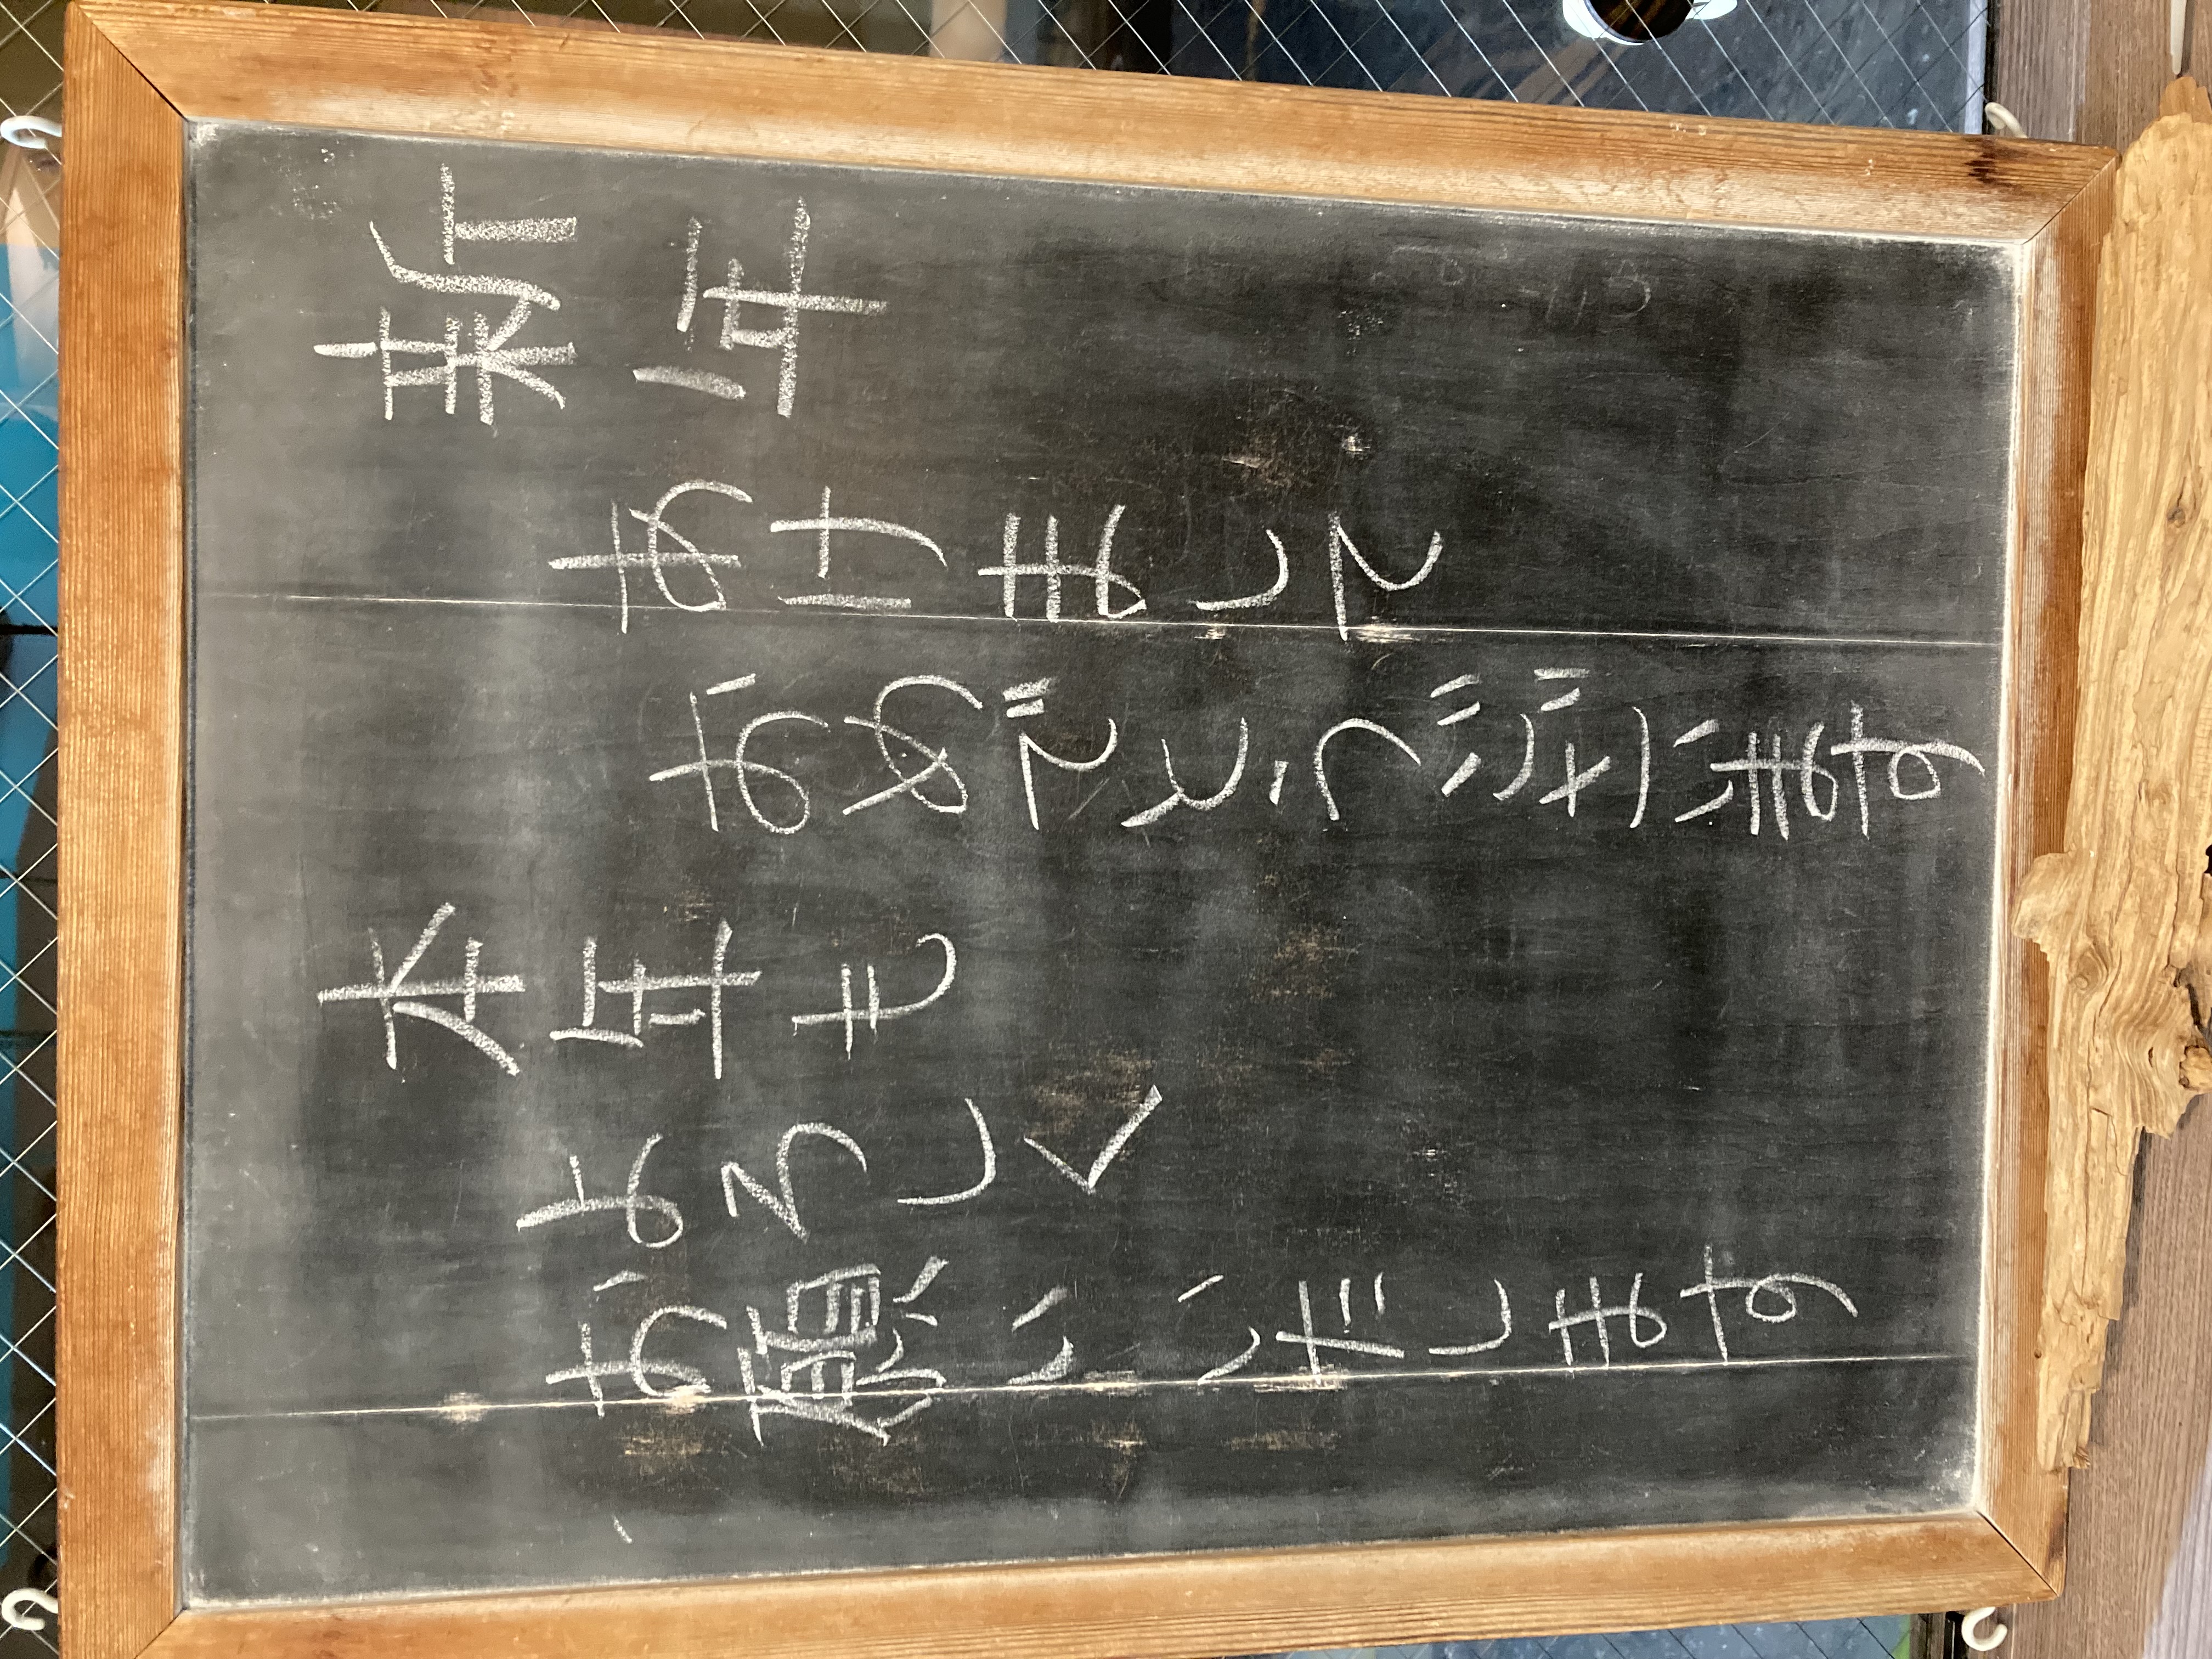 新年
あけまして
おめでとうございます
本年も
よろしく
お願いいたします